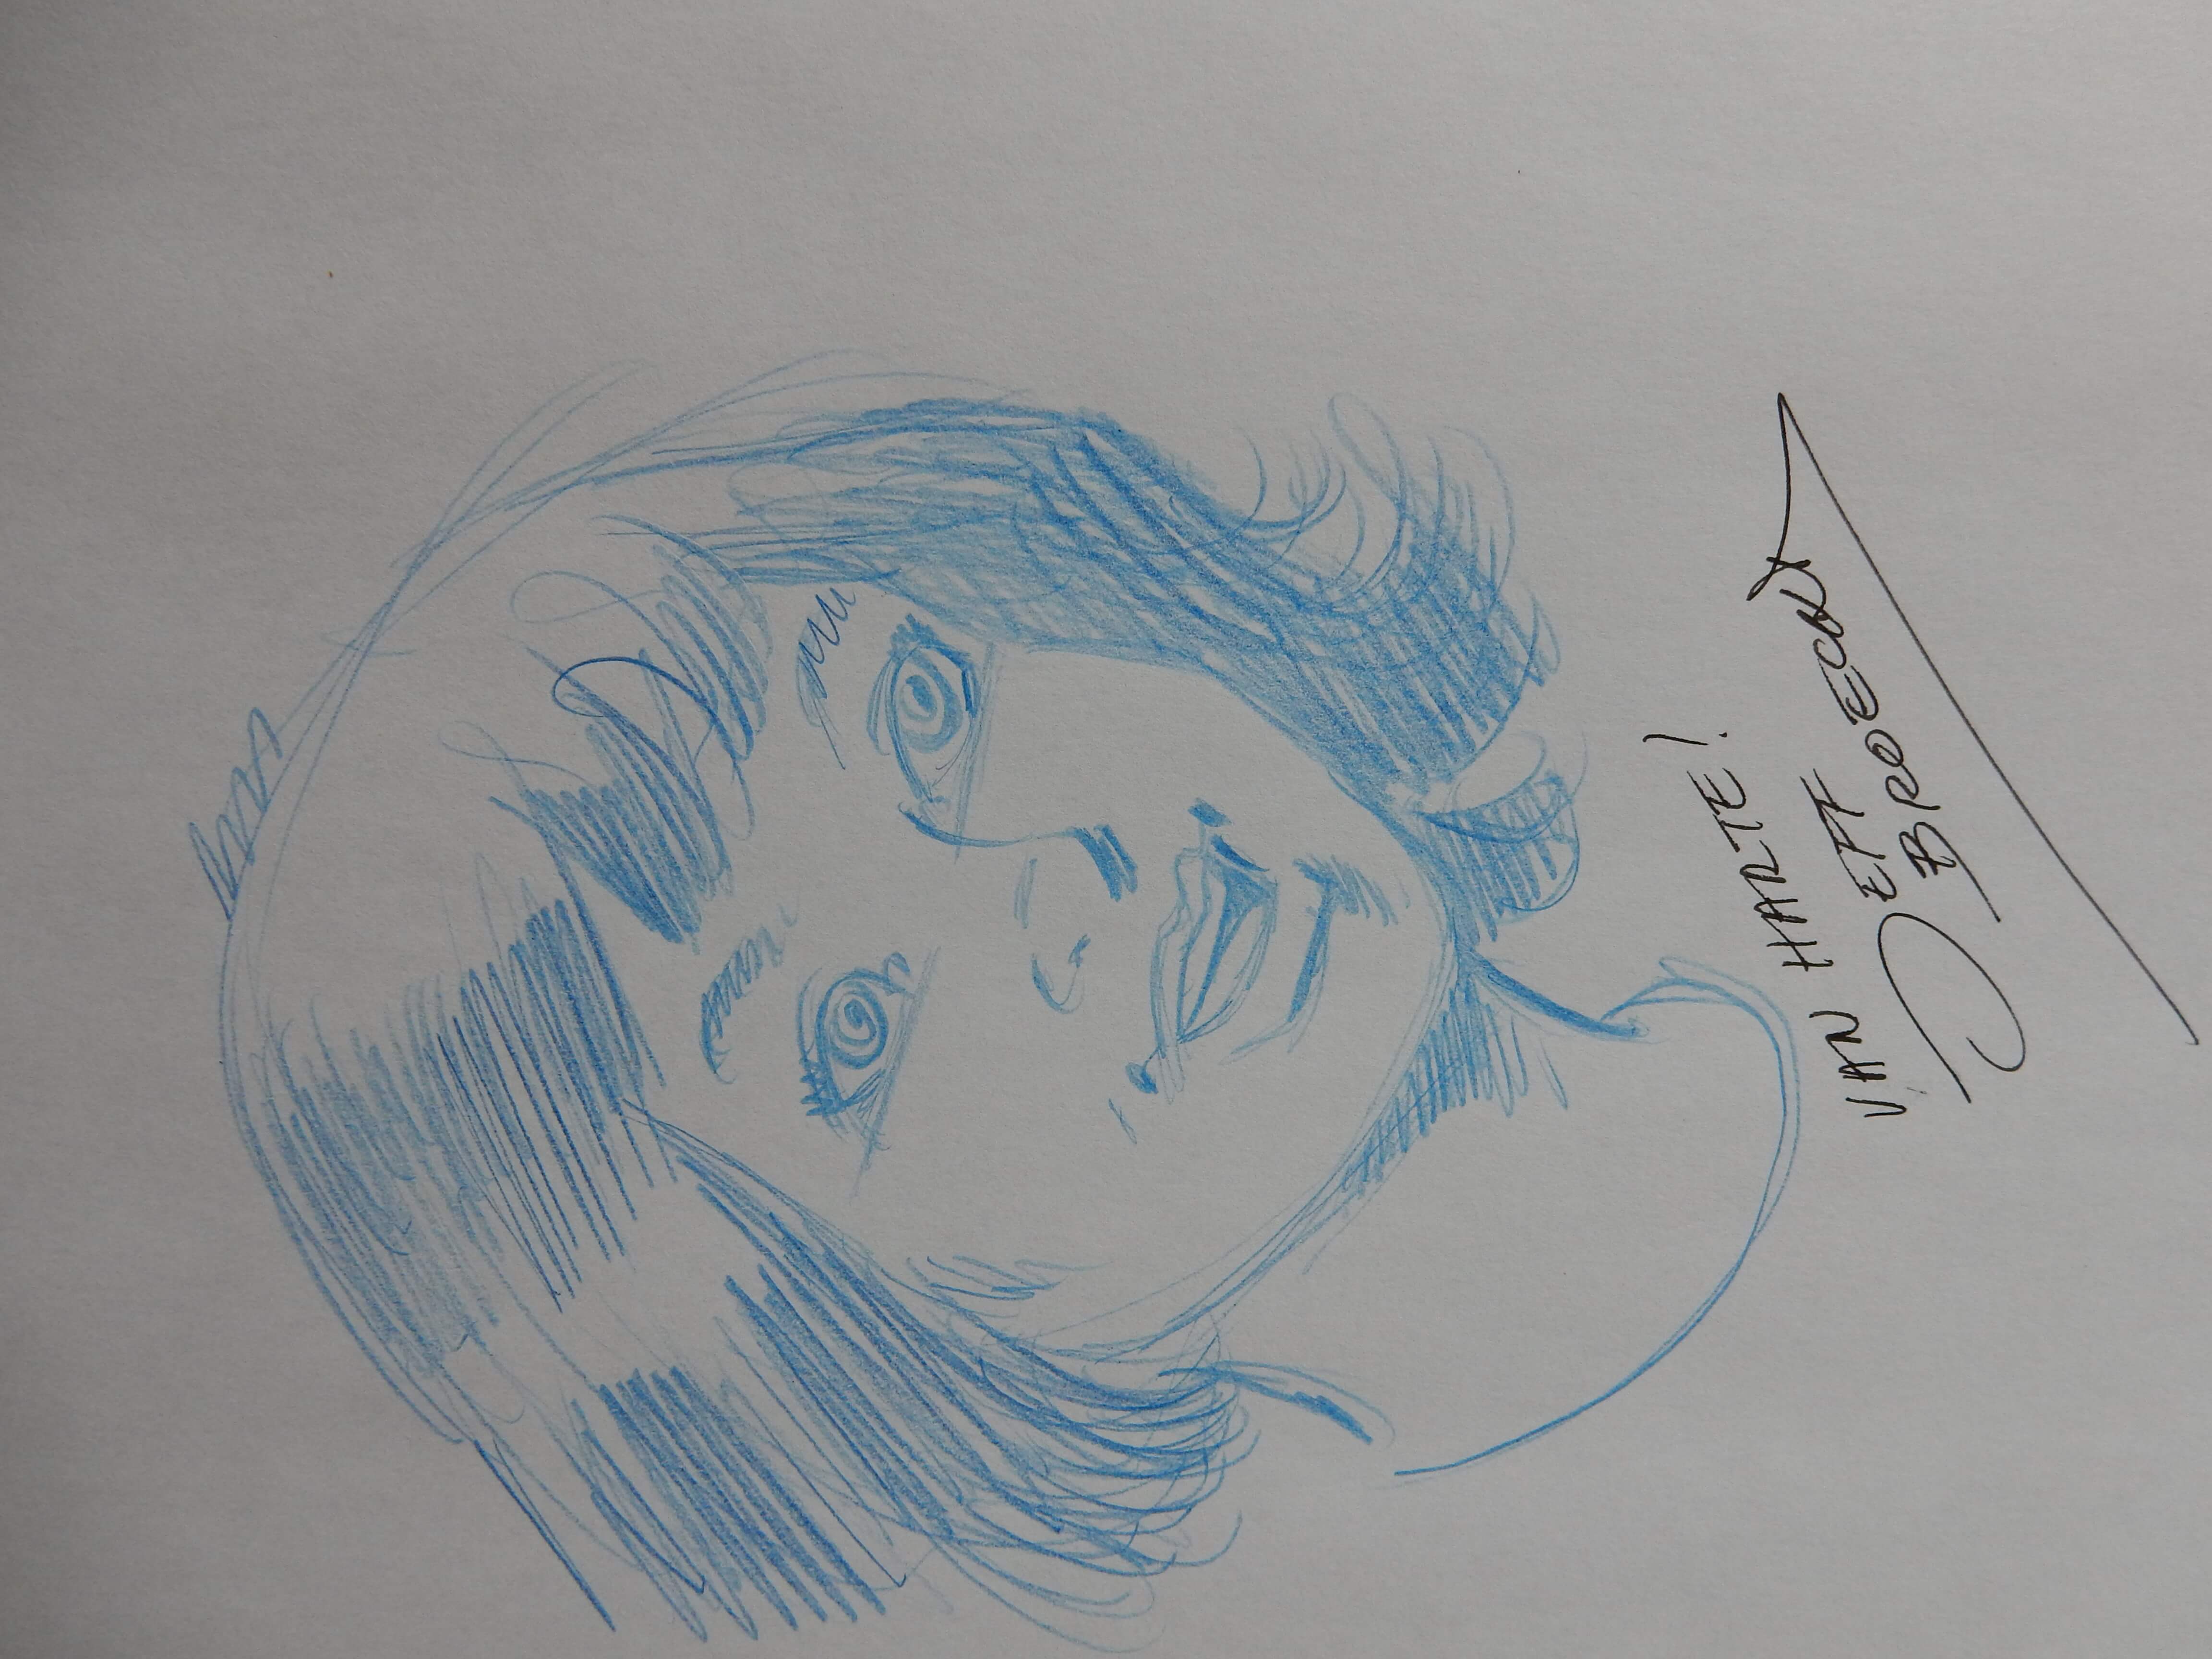 VAN HARTE!
JEFF
BROECKX